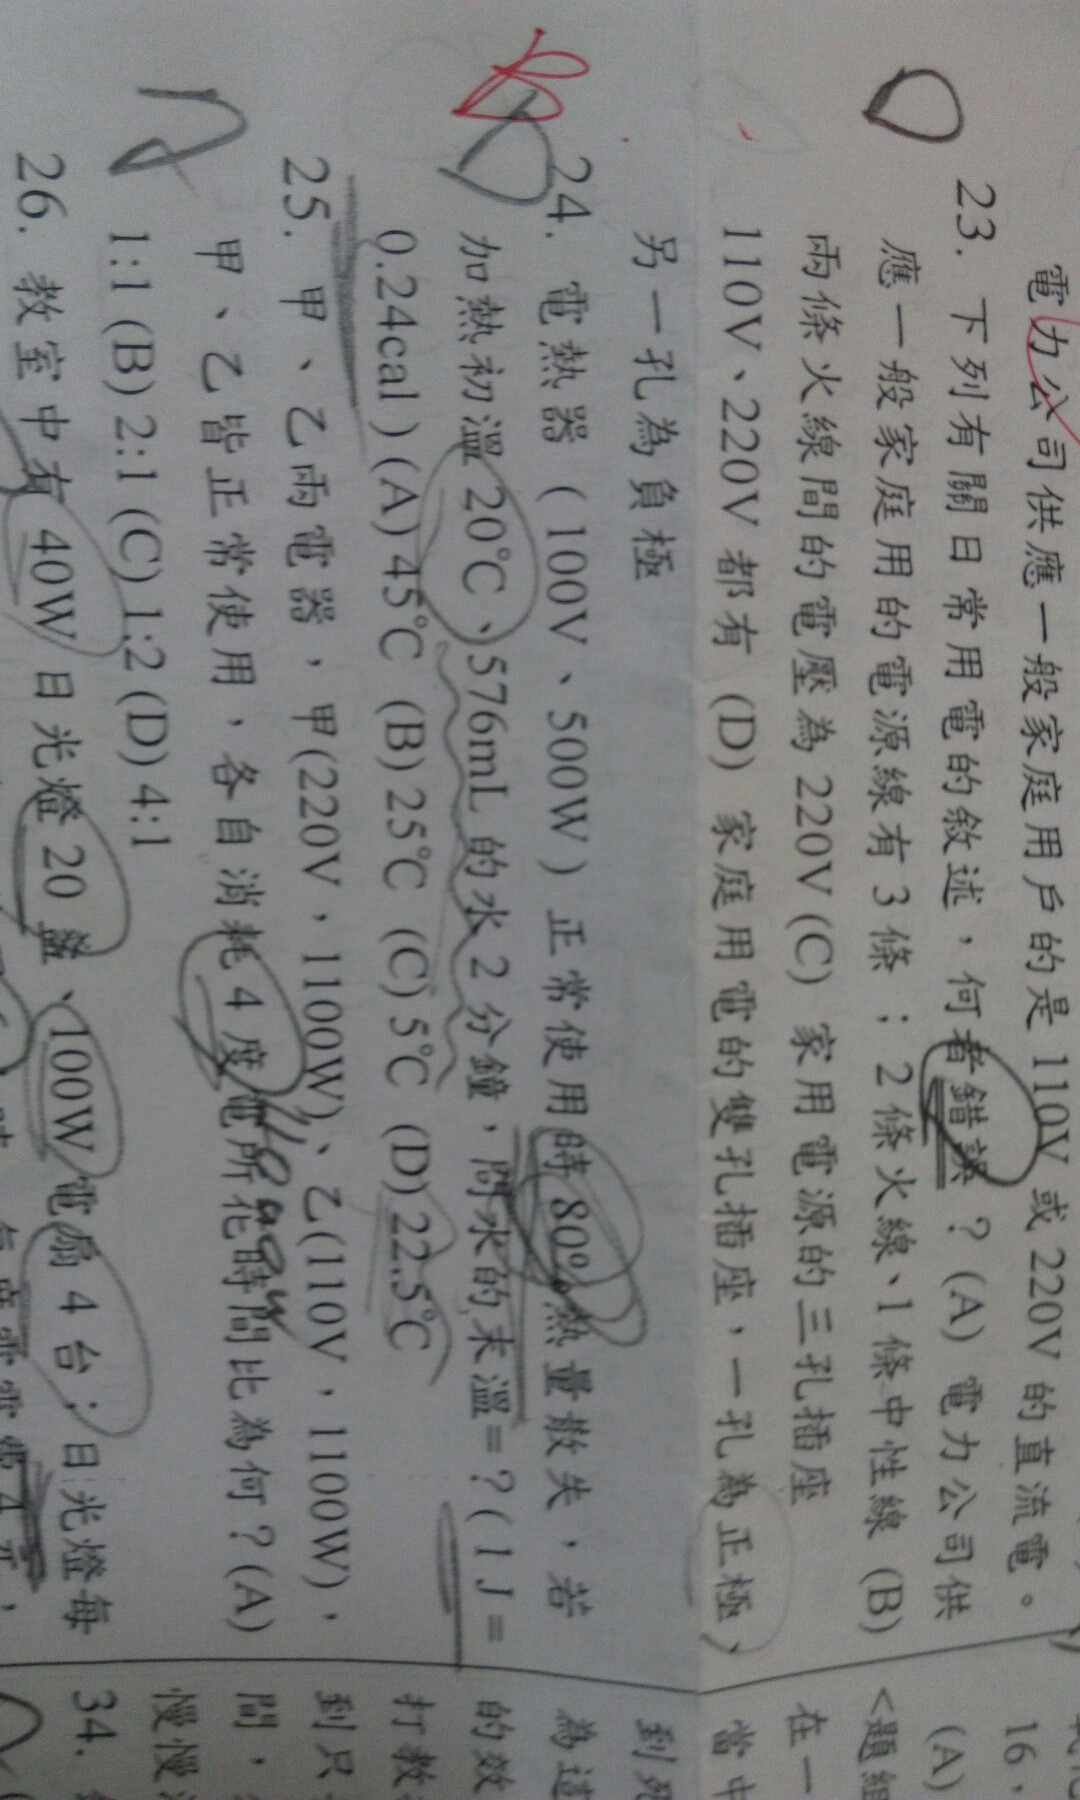 電力公司供應一般家庭用戶的是 110V 或 220V 的直流電。
23. 下列有關日常用電的敘述，何者錯誤？(A) 電力公司供
應一般家庭用的電源線有 3 條；2 條火線、1 條中性線 (B)
兩條火線間的電壓為 220V (C) 家用電源的三孔插座
110V、220V 都有 (D) 家庭用電的雙孔插座，一孔為正極、
另一孔為負極
24. 電熱器（100V、500W）正常使用時 80% 熱量散失，若
加熱初溫 20℃、576mL 的水 2 分鐘，問水的末溫=？(1 J =
0.24cal ) (A) 45℃ (B) 25℃ (C) 5℃ (D) 22.5℃
25. 甲、乙兩電器，甲(220V，1100W)、乙(110V，1100W)，
甲、乙皆正常使用，各自消耗 4 度電所花時間比為何？(A)
1:1 (B) 2:1 (C) 1:2 (D) 4:1
26. 教室中有 40W 日光燈 20 盞、100W 電扇 4 台；日光燈每
16，
(A)
<題組
在一
當中
到死
為這
的效
打教
到只
間，
慢慢
34.